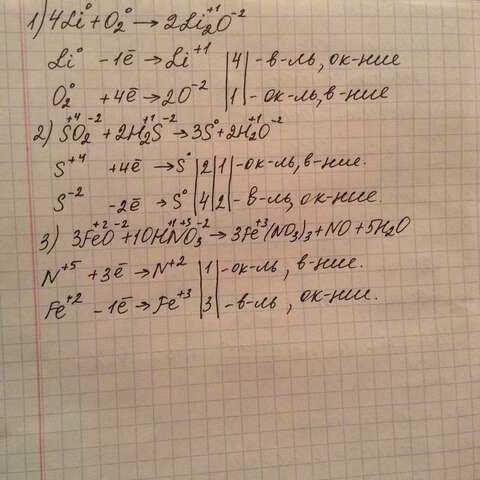 1) 4Li⁰ + O₂⁰ → 2Li₂⁺¹O⁻²
Li⁰ -1ē → Li⁺¹ |4| - в-ль, ок-ние
O₂⁰ +4ē → 2O⁻² |1| - ок-ль, в-ние
2) S⁺⁴O₂⁻² + 2H₂⁺¹S⁻² → 3S⁰ + 2H₂⁺¹O⁻²
S⁺⁴ +4ē → S⁰ |2|1| - ок-ль, в-ние.
S⁻² -2ē → S⁰ |4|2| - в-ль, ок-ние.
3) 3Fe⁺²O⁻² + 10H⁺¹N⁺⁵O₃⁻² → 3Fe⁺³(NO₃)₃ + NO + 5H₂O
N⁺⁵ +3ē → N⁺² |1| - ок-ль, в-ние.
Fe⁺² -1ē → Fe⁺³ |3| - в-ль, ок-ние.